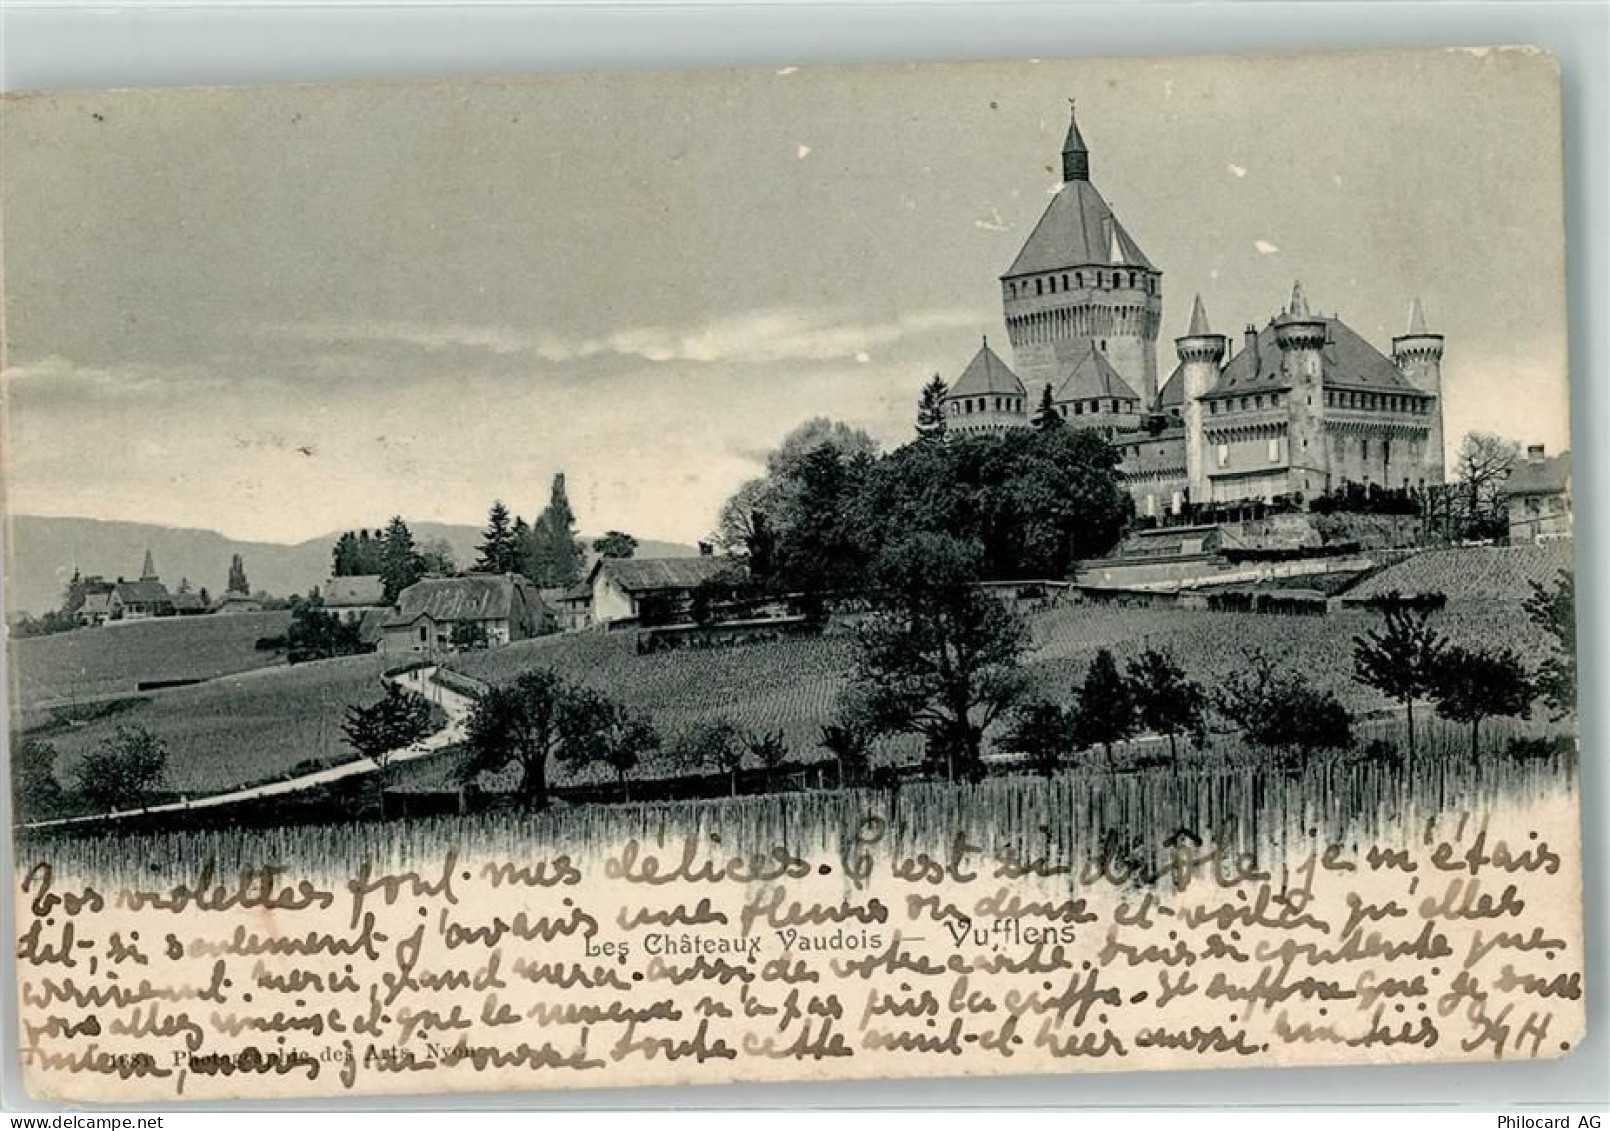 Vos violettes font mes délices. C'est si drôle je m'étais
dit, si seulement j'avais une fleur ou deux et voilà qu'elles
Les Châteaux Vaudois — Vufflens
arrivent. merci, grand merci. aussi de votre carte. suis si contente que
vous allez mieux et que le neveux n'a pas pris la griffe. Je suppose que je suis
mieux, mais j'ai toussé toute cette nuit et hier aussi.
Photographie des Arts, Nyon
Philocard AG